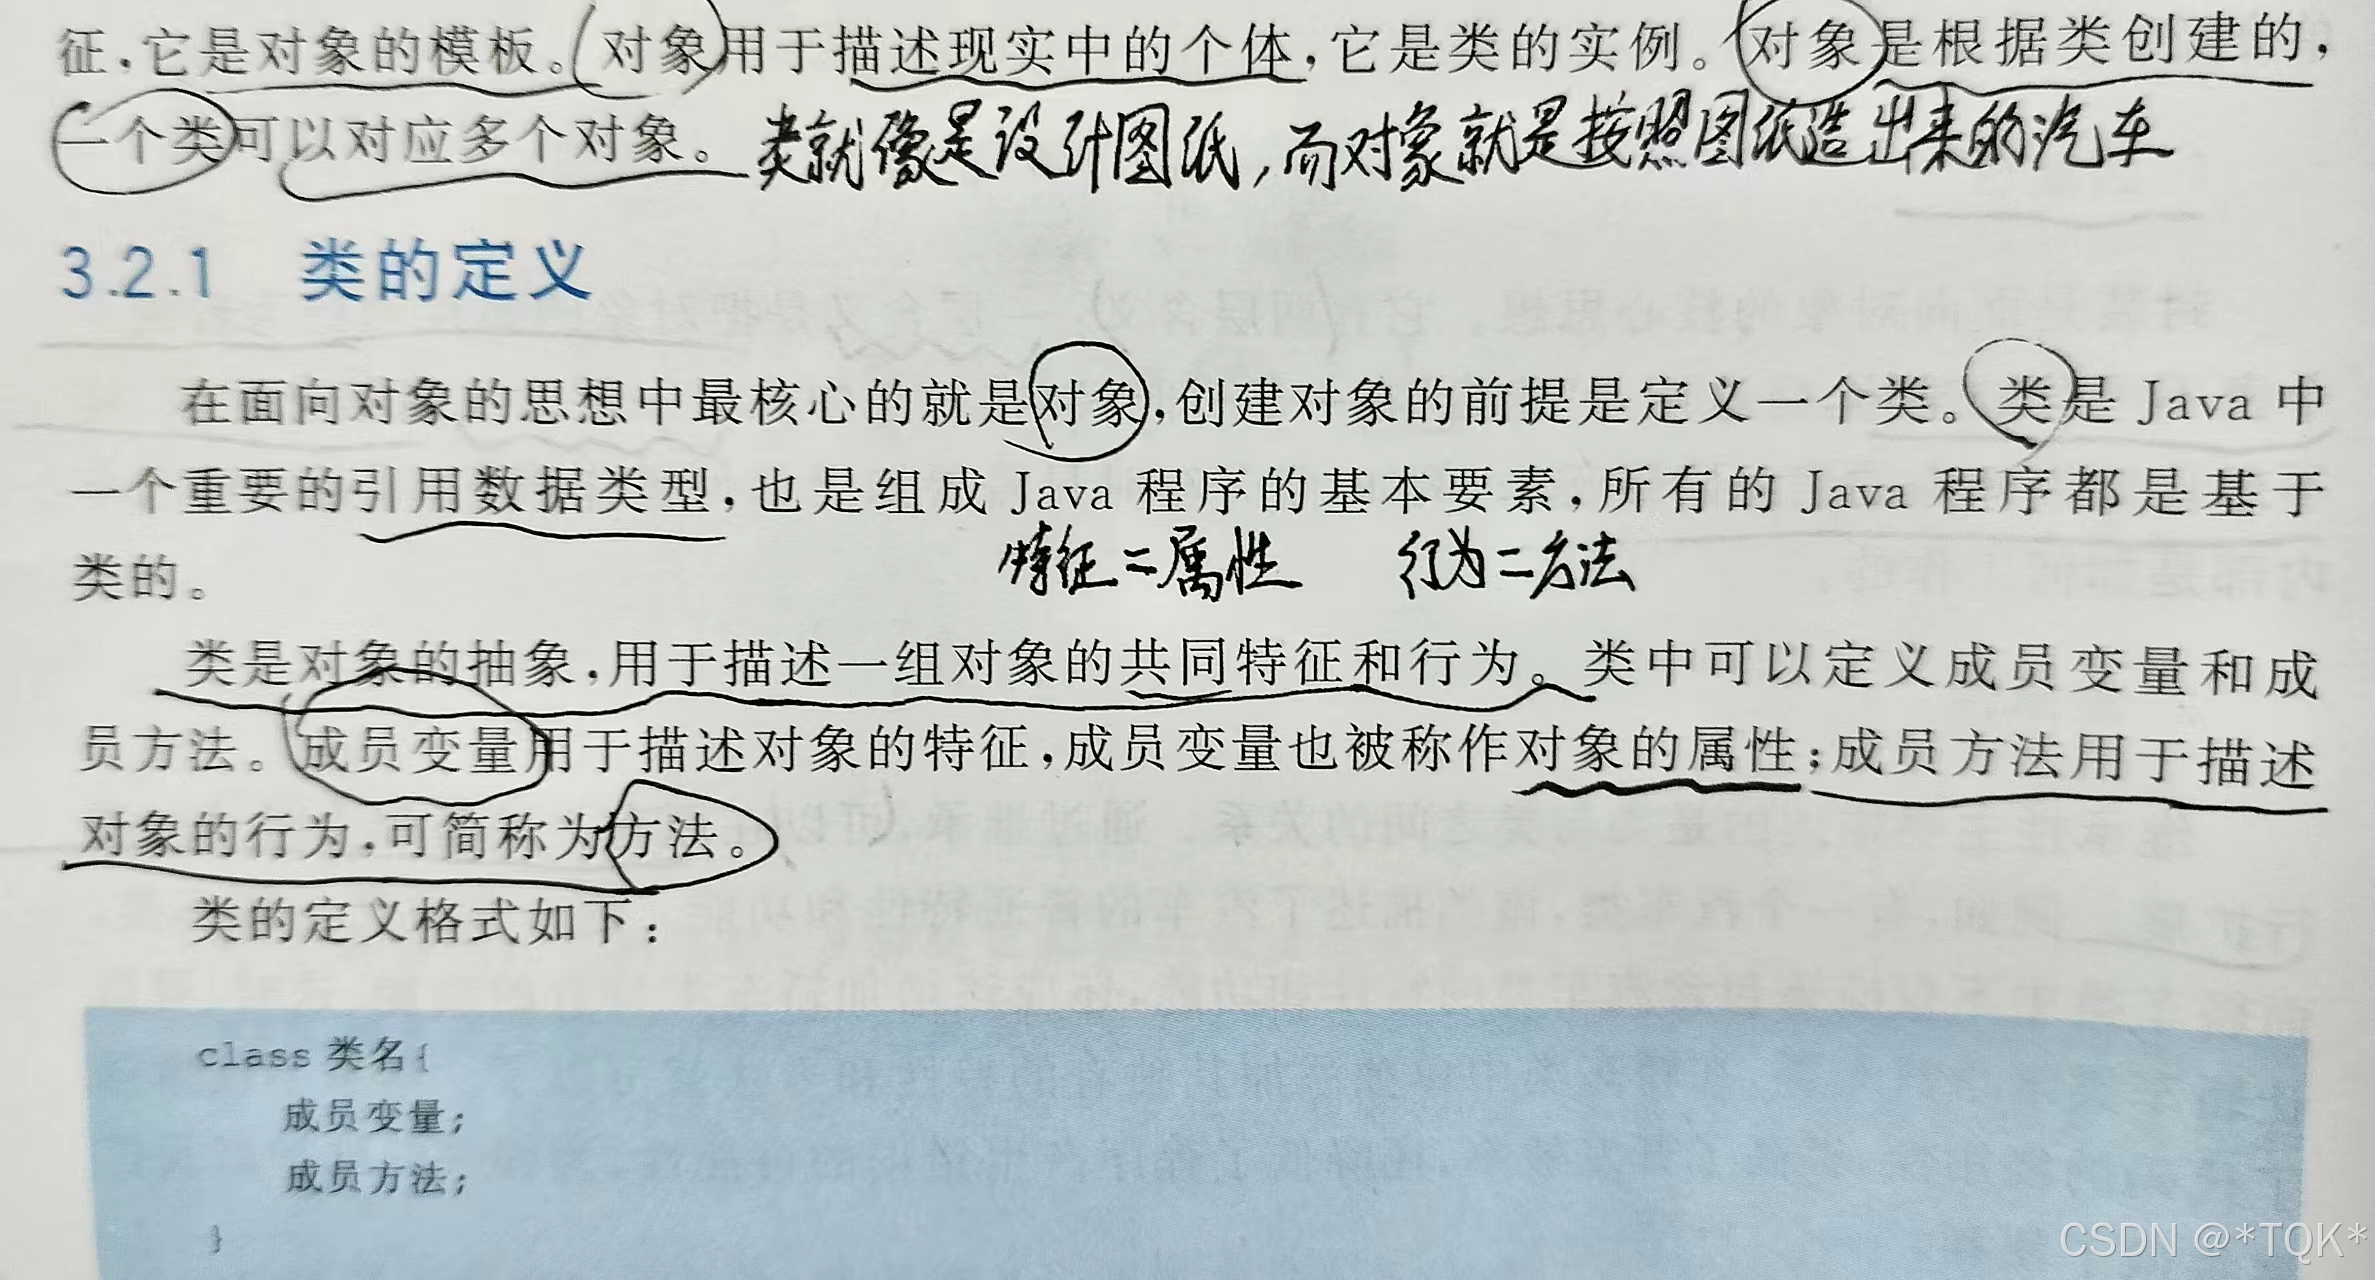 征,它是对象的模板。对象用于描述现实中的个体,它是类的实例。对象是根据类创建的,
一个类可以对应多个对象。 类就像是设计图纸,而对象就是按照图纸造出来的汽车
3.2.1 类的定义
在面向对象的思想中最核心的就是对象,创建对象的前提是定义一个类。类是 Java 中
一个重要的引用数据类型,也是组成 Java 程序的基本要素,所有的 Java 程序都是基于
类的。
特征=属性 行为=方法
类是对象的抽象,用于描述一组对象的共同特征和行为。类中可以定义成员变量和成
员方法。成员变量用于描述对象的特征,成员变量也被称作对象的属性;成员方法用于描述
对象的行为,可简称为方法。
类的定义格式如下:
class 类名{
成员变量;
成员方法;
}
CSDN @*TQK*